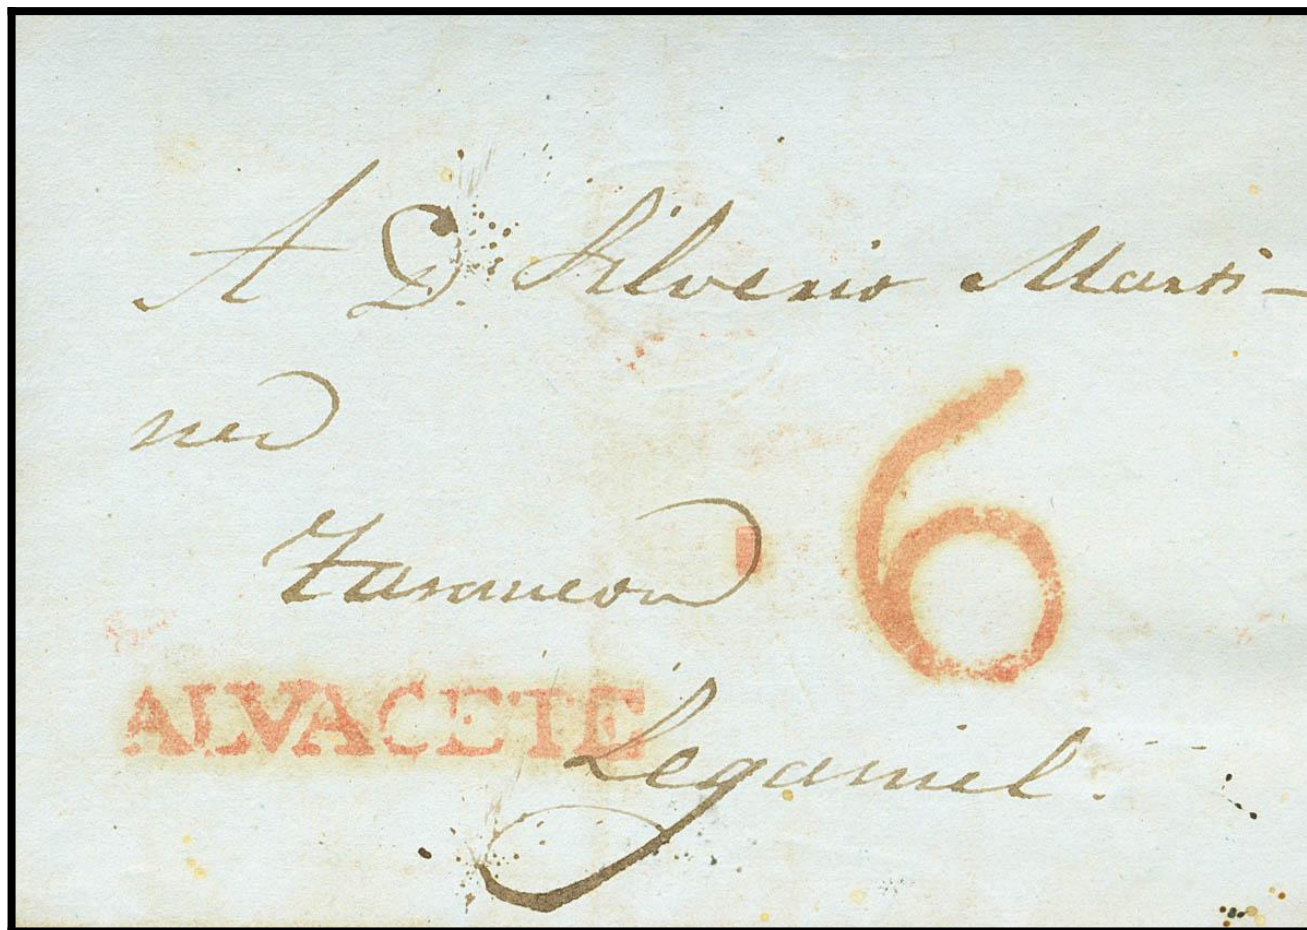 A D.n Silverio Marti-
nez
Tarancon
6
ALVACETE
Legamiel.